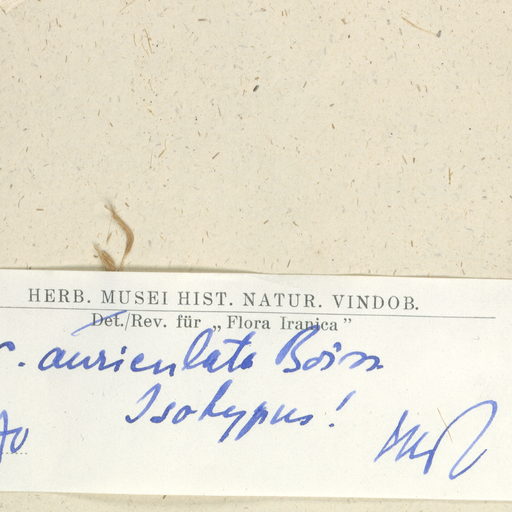 HERB. MUSEI HIST. NATUR. VINDOB.
Det./Rev. für „Flora Iranica”
. auriculata Boiss
Isotypus!